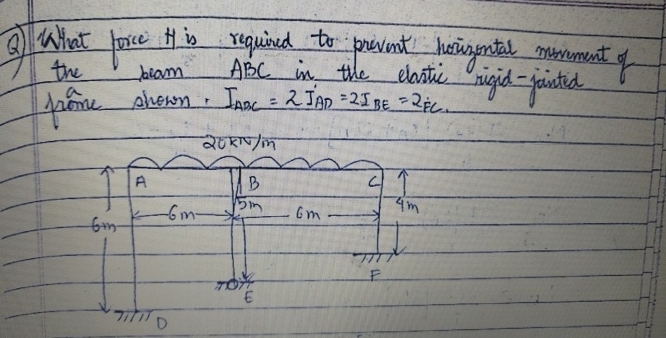 Q) What force H is required to prevent horizontal movement of
the beam ABC in the elastic rigid-jointed
frame shown. I_ABC = 2I_AD = 2I_BE = 2_FC.
20KN/m
A B C
5m
6m 6m 6m 4m
F
E
D